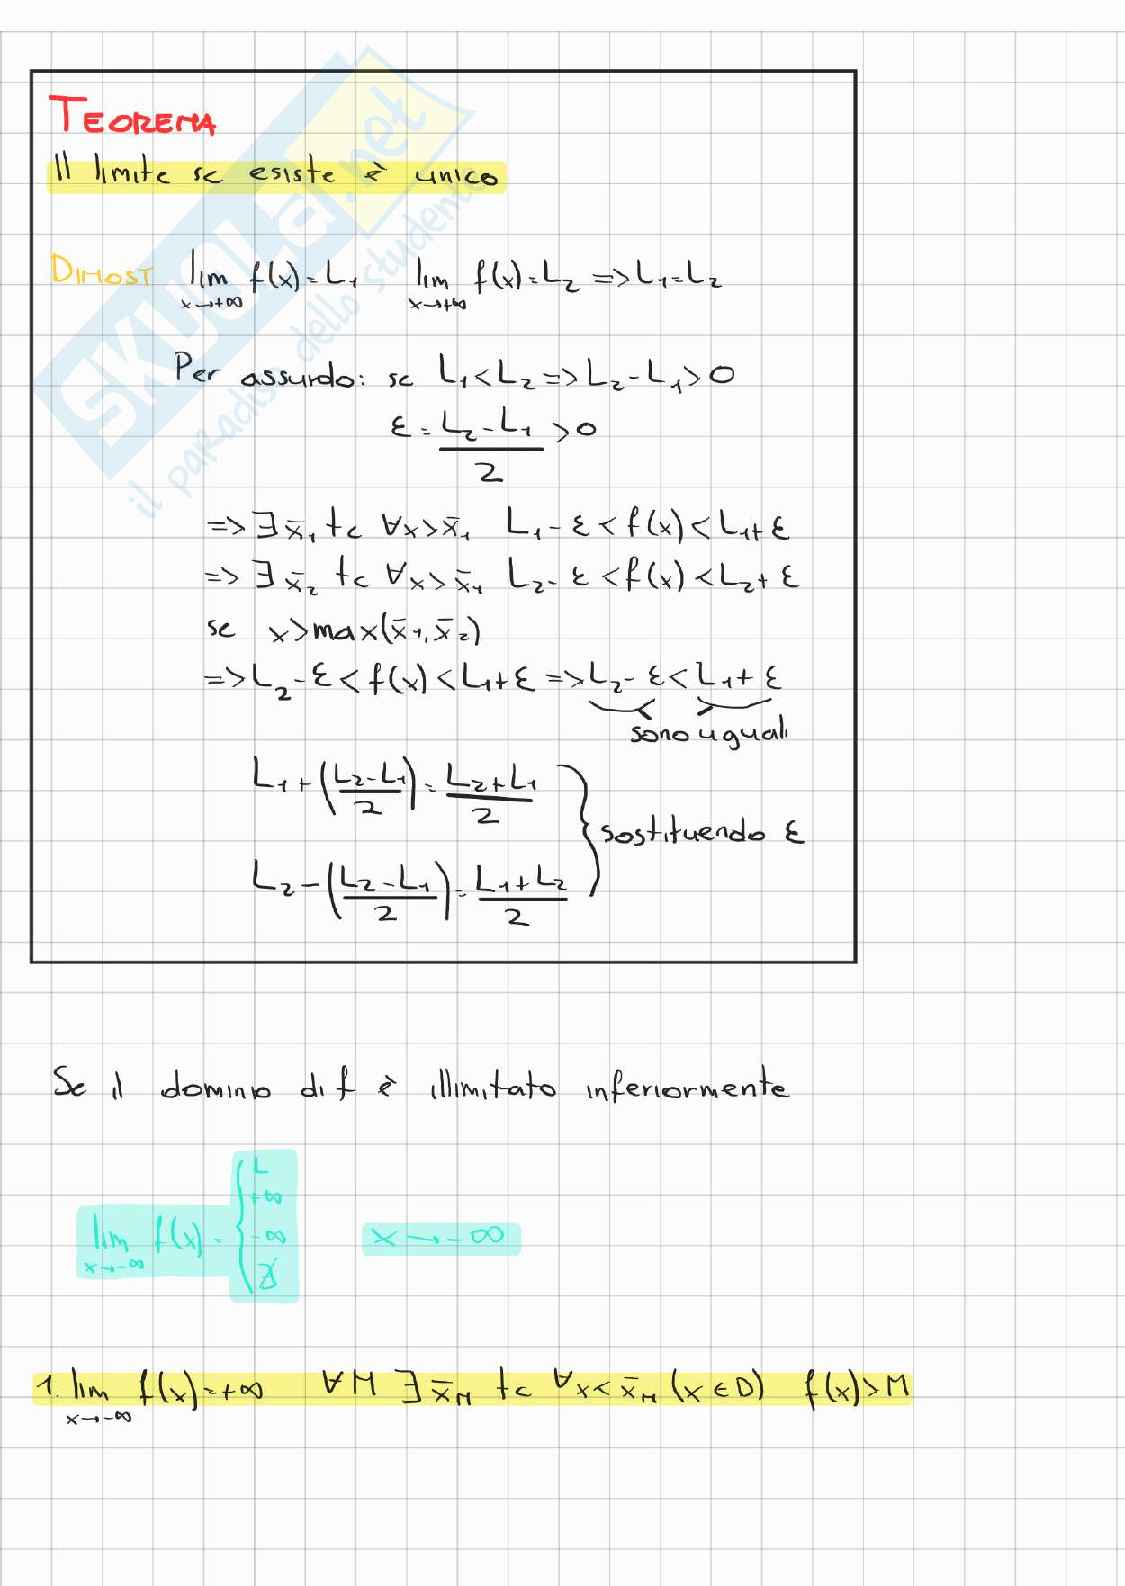 TEOREMA
Il limite se esiste è unico
DIMOST lim x→+∞ f(x)=L₁ lim x→+∞ f(x)=L₂ => L₁=L₂
Per assurdo: se L₁<L₂ => L₂-L₁>0
ε = (L₂-L₁)/2 >0
=> ∃ x̄₁ tc ∀x>x̄₁ L₁-ε<f(x)<L₁+ε
=> ∃ x̄₂ tc ∀x>x̄₁ L₂-ε<f(x)<L₂+ε
se x>max(x̄₁,x̄₂)
=> L₂-ε<f(x)<L₁+ε => L₂-ε<L₁+ε
sono uguali
L₁+((L₂-L₁)/2)=(L₂+L₁)/2
sostituendo ε
L₂-((L₂-L₁)/2)=(L₁+L₂)/2
Se il dominio di f è illimitato inferiormente
lim x→-∞ f(x) = { L +∞ -∞ ∄ x→-∞
1. lim x→-∞ f(x)=+∞ ∀M ∃ x̄_M tc ∀x<x̄_M (x∈D) f(x)>M
SKUOLA.net
il paradiso dello studente